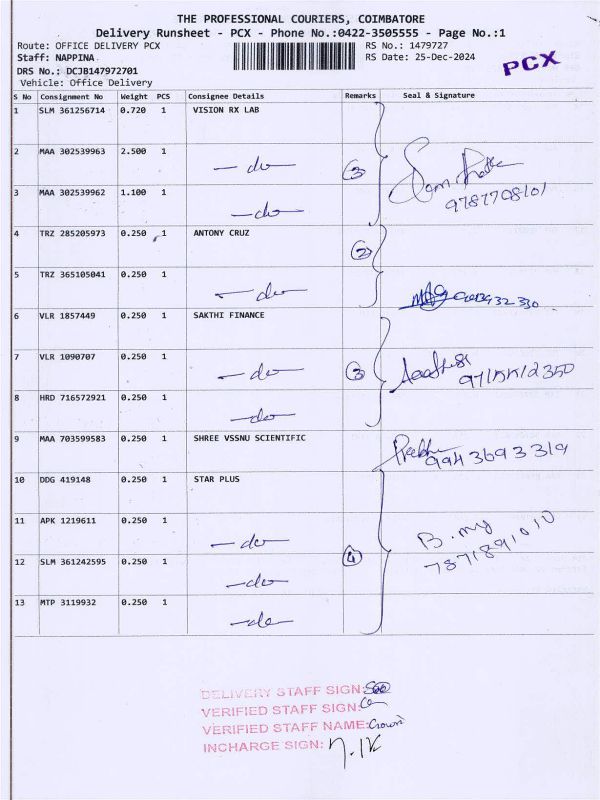 THE PROFESSIONAL COURIERS, COIMBATORE
Delivery Runsheet - PCX - Phone No.:0422-3505555 - Page No.:1
Route: OFFICE DELIVERY PCX RS No.: 1479727
Staff: NAPPINA RS Date: 25-Dec-2024
PCX
DRS No.: DCJB147972701
Vehicle: Office Delivery
S No Consignment No Weight PCS Consignee Details Remarks Seal & Signature
1 SLM 361256714 0.720 1 VISION RX LAB
2 MAA 302539963 2.500 1 -do- 3
3 MAA 302539962 1.100 1 -do- 9787708101
4 TRZ 285205973 0.250 1 ANTONY CRUZ 2
5 TRZ 365105041 0.250 1 -do-
6 VLR 1857449 0.250 1 SAKTHI FINANCE
7 VLR 1090707 0.250 1 -do- 3
8 HRD 716572921 0.250 1 -do-
9 MAA 703599583 0.250 1 SHREE VSSNU SCIENTIFIC Prabhu 9943693319
10 DDG 419148 0.250 1 STAR PLUS
11 APK 1219611 0.250 1 -do- B. my
12 SLM 361242595 0.250 1 -do- 4 7871891010
13 MTP 3119932 0.250 1 -do-
DELIVERY STAFF SIGN:
VERIFIED STAFF SIGN:
VERIFIED STAFF NAME:
INCHARGE SIGN: